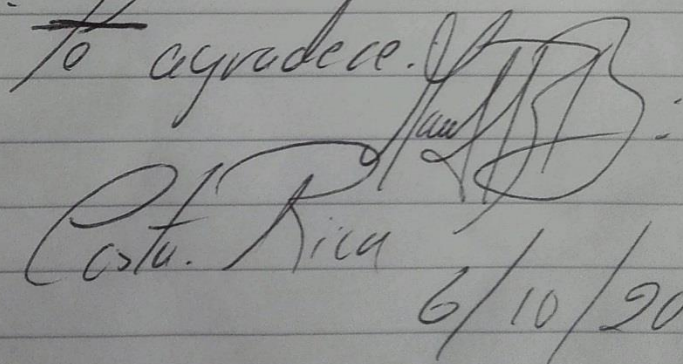 To agradece.
Costa. Rica
6/10/20